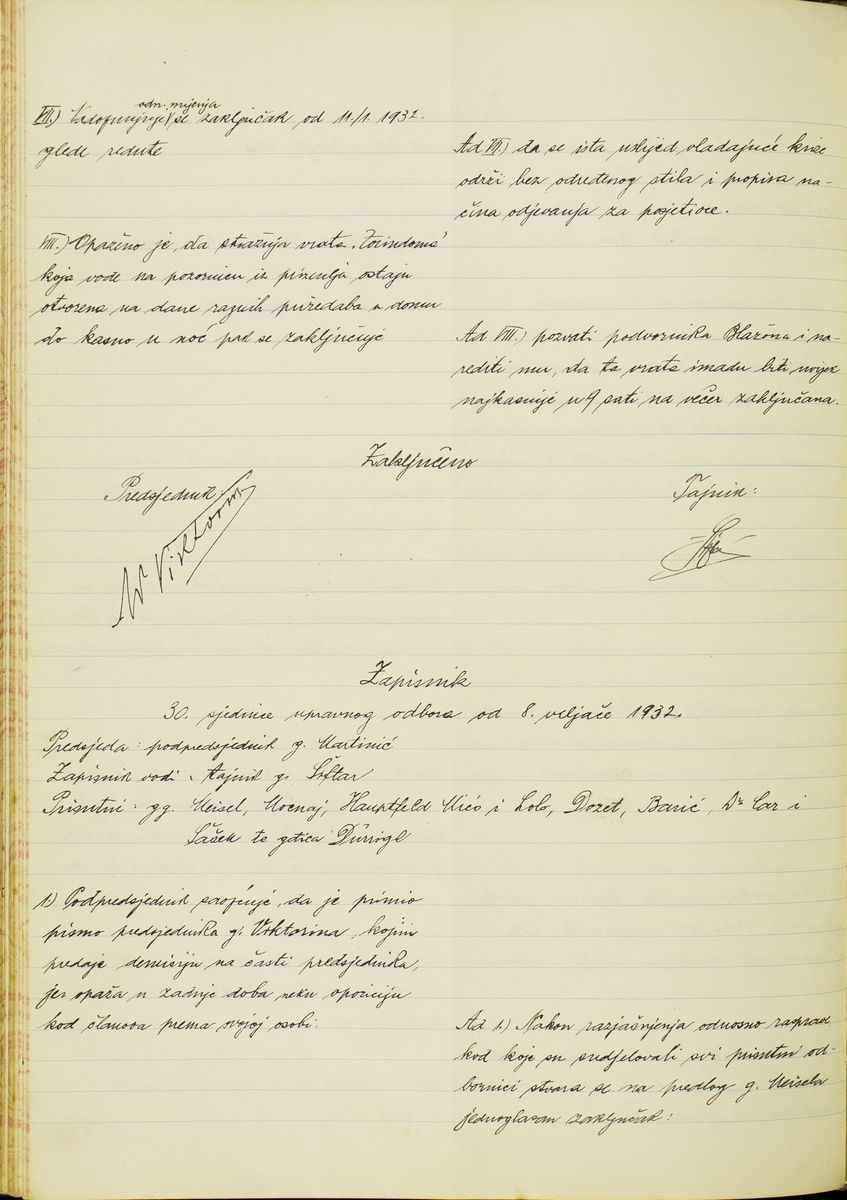 odn. mijenja
VII.) Nadopunjuje se zaključak od 11./1. 1932.
glede redute
Ad VII.) da se ista uslijed vladajuće krize
održi bez određenog stila i propisa na-
čina odjevanja za posjetioce.
VIII.) Opaženo je, da stražnja vrata
koja vode na pozornicu iz prizemlja ostaju
otvorena na dane raznih priredaba u domu
do kasno u noć pak se zaključuje
Ad VIII.) pozvati podvornika Blažona i na-
rediti mu, da ta vrata imadu biti uvijek
najkasnije u 9 sati na večer zaključana.
Zaključeno
Predsjednik:
Tajnik:
Dr Viktorin
Zapisnik
30. sjednice upravnog odbora od 8. veljače 1932.
Predsjeda: podpredsjednik g. Martinić
Zapisnik vodi: tajnik g. Šiftar
Prisutni: gg. Meisel, Mocnaj, Hauptfeld Mićo i Lolo, Dozet, Barić, Dr Car i
Šašek te gdica Dürrigl
1.) Podpredsjednik saopćuje, da je primio
pismo predsjednika g. Viktorina, kojim
predaje demisiju na časti predsjednika,
jer opaža u zadnje doba neku opoziciju
kod članova prema svojoj osobi.
Ad 1.) Nakon razjašnjenja odnosno rasprave
kod koje su sudjelovali svi prisutni od-
bornici stvara se na predlog g. Meisela
jednoglasan zaključak: